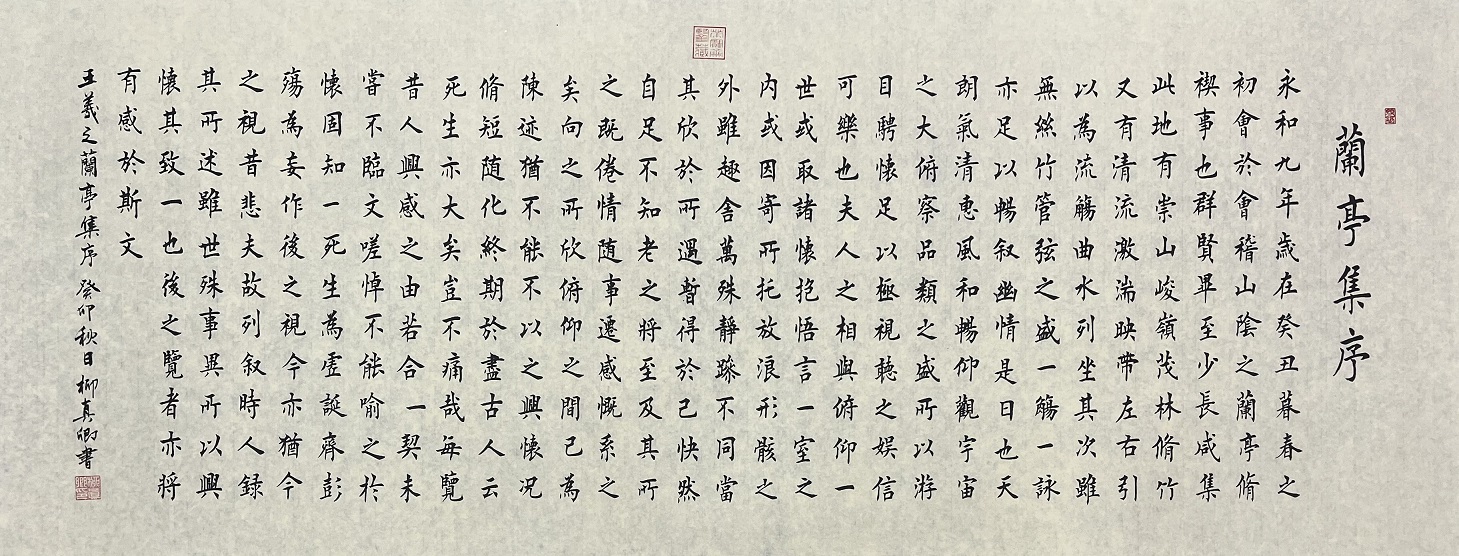 蘭亭集序
永和九年歲在癸丑暮春之
初會於會稽山陰之蘭亭脩
禊事也群賢畢至少長咸集
此地有崇山峻嶺茂林脩竹
又有清流激湍映帶左右引
以為流觴曲水列坐其次雖
無絲竹管弦之盛一觴一詠
亦足以暢叙幽情是日也天
朗氣清惠風和暢仰觀宇宙
之大俯察品類之盛所以游
目騁懷足以極視聽之娛信
可樂也夫人之相與俯仰一
世或取諸懷抱悟言一室之
内或因寄所托放浪形骸之
外雖趣舍萬殊靜躁不同當
其欣於所遇暫得於己快然
自足不知老之將至及其所
之既倦情随事遷感慨系之
矣向之所欣俯仰之間已為
陳迹猶不能不以之興懷況
脩短随化終期於盡古人云
死生亦大矣豈不痛哉每覽
昔人興感之由若合一契未
嘗不臨文嗟悼不能喻之於
懷固知一死生為虛誕齊彭
殤為妄作後之視今亦猶今
之視昔悲夫故列叙時人録
其所述雖世殊事異所以興
懷其致一也後之覽者亦將
有感於斯文
王羲之蘭亭集序 癸卯秋日柳真卿書